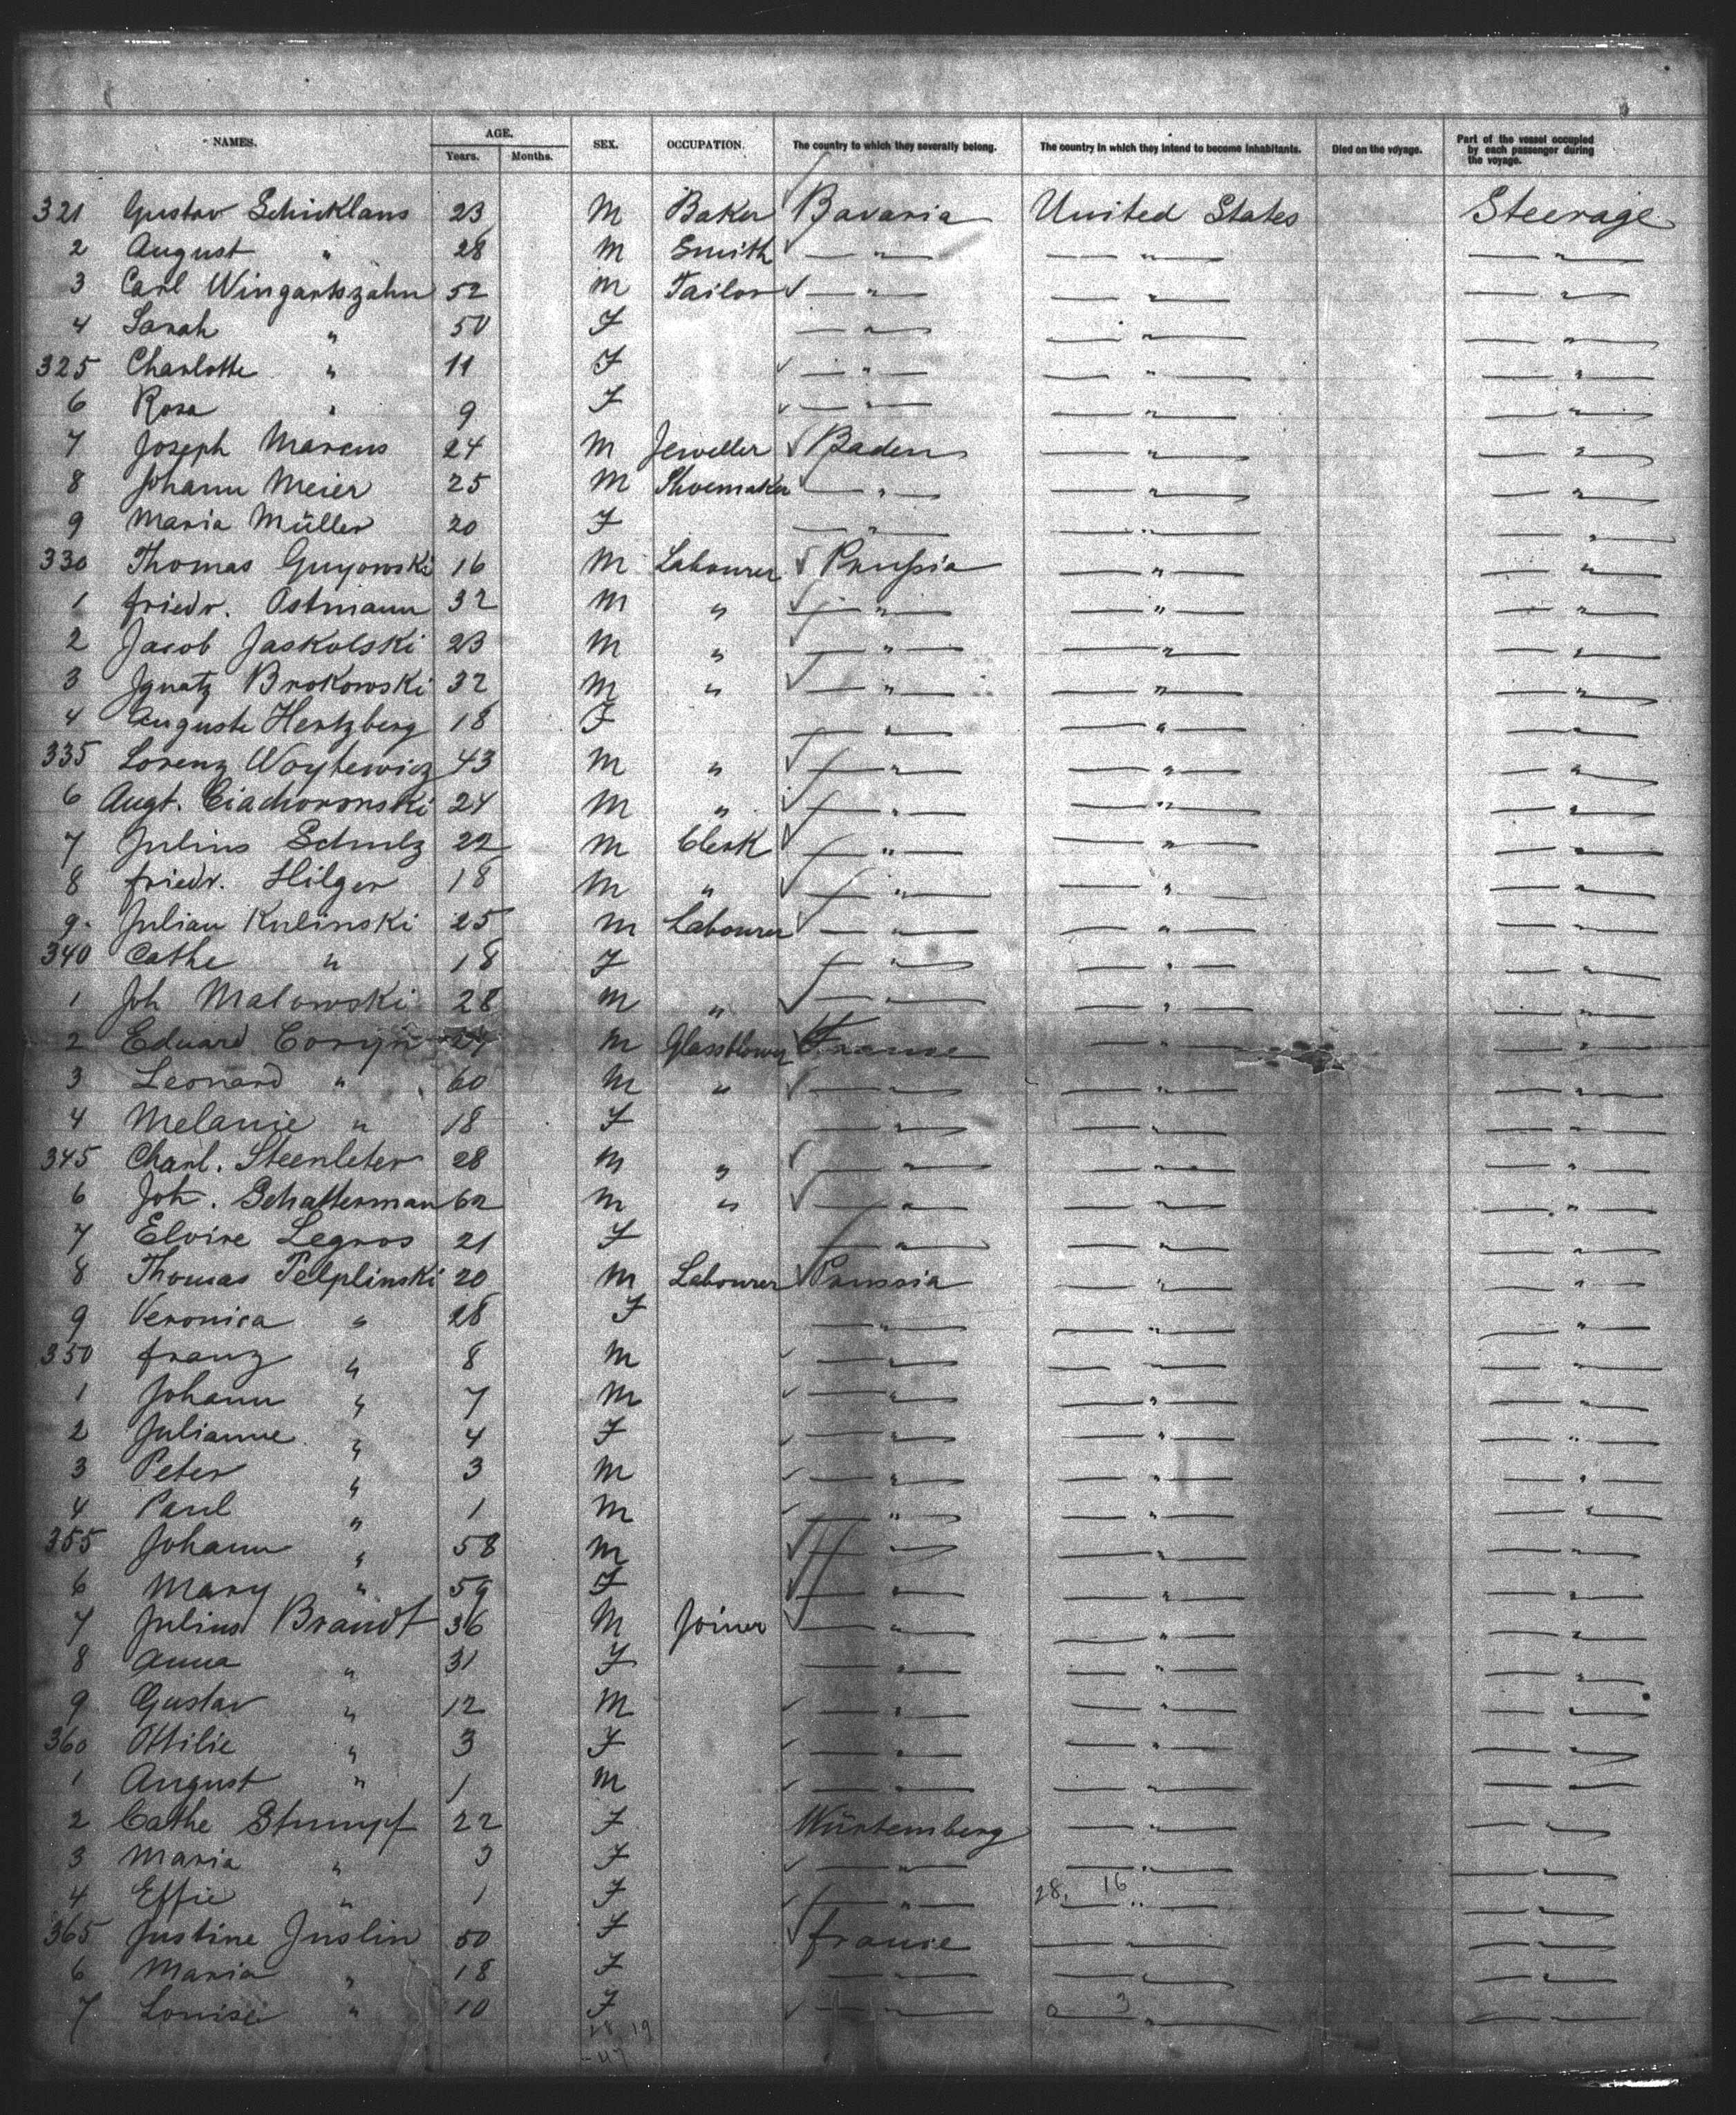 NAMES. AGE. SEX. OCCUPATION. The country to which they severally belong. The country in which they intend to become inhabitants. Died on the voyage. Part of the vessel occupied by each passenger during the voyage.
Years. Months.
321 Gustav Schicklans 23 M Baker Bavaria United States Steerage
2 August " 28 M Smith " " "
3 Carl Wingartszahn 52 M Tailor " " "
4 Sarah " 50 F " " "
325 Charlotte " 11 F " " "
6 Rosa " 9 F " " "
7 Joseph Marcus 24 M Jeweller Baden " "
8 Johann Meier 25 M Shoemaker " " "
9 Maria Müller 20 F " " "
330 Thomas Guyowski 16 M Labourer Prussia " "
1 Friedr. Ostmann 32 M " " " "
2 Jacob Jaskolski 23 M " " " "
3 Ignatz Brokowski 32 M " " " "
4 Auguste Hertzberg 18 F " " "
335 Lorenz Woytewicz 43 M " " " "
6 Augt. Ciachoronski 24 M " " " "
7 Julius Schulz 22 M Clerk " " "
8 Friedr. Hilger 18 M " " " "
9. Julian Kulinski 25 M Labourer " " "
340 Cathe " 18 F " " "
1 Joh Malowski 28 M " " " "
2 Eduard Coryn M Glassblower France " "
3 Leonard " 60 M " " " "
4 Melanie " 18 F " " "
345 Charl. Steenleter 28 M " " " "
6 Joh. Schatterman 62 M " " " "
7 Elvire Legros 21 F " " "
8 Thomas Pelplinski 20 M Labourer Prussia " "
9 Veronica " 28 F " " "
350 Franz " 8 M " " "
1 Johann " 7 M " " "
2 Julianne " 4 F " " "
3 Peter " 3 M " " "
4 Paul " 1 M " " "
355 Johann " 58 M " " "
6 Mary " 59 F " " "
7 Julius Brandt 36 M Joiner " " "
8 Anna " 31 F " " "
9 Gustav " 12 M " " "
360 Ottilie " 3 F " " "
1 August " 1 M " " "
2 Cathe Stumpf 22 F Würtemberg " "
3 Maria " 3 F " " "
4 Effie " 1 F " 28, 16 " "
365 Justine Juslin 50 F France " "
6 Maria " 18 F " " "
7 Louise " 10 F " 3 " "
19